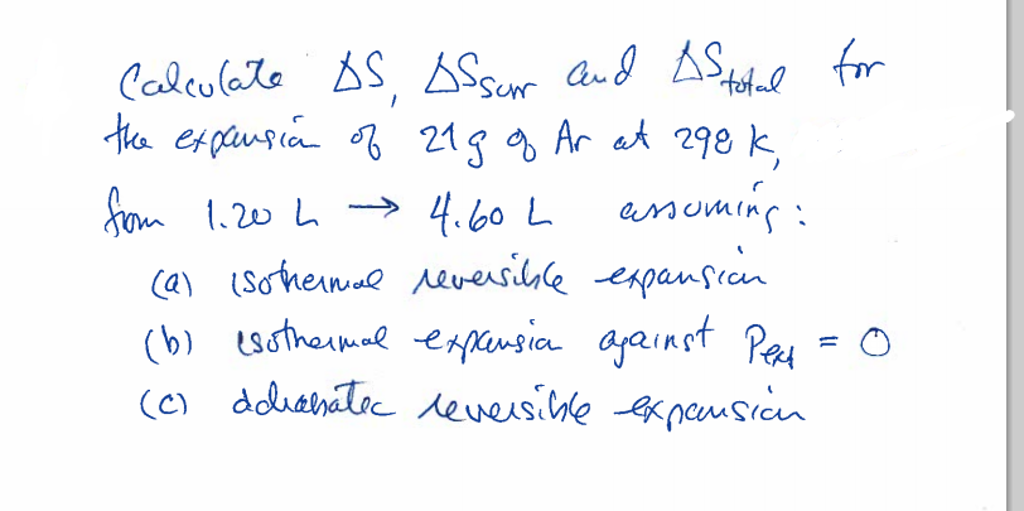 Calculate ΔS, ΔSsurr and ΔStotal for
the expansion of 21g of Ar at 298 K,
from 1.20 L → 4.60 L assuming:
(a) isothermal reversible expansion
(b) isothermal expansion against Pext = 0
(c) adiabatic reversible expansion